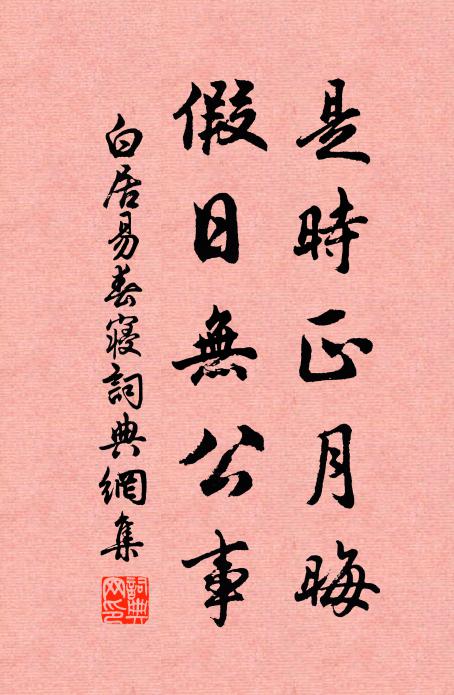 是時正月晦
假日無公事
白居易春寝詞典網集
詞典
网印